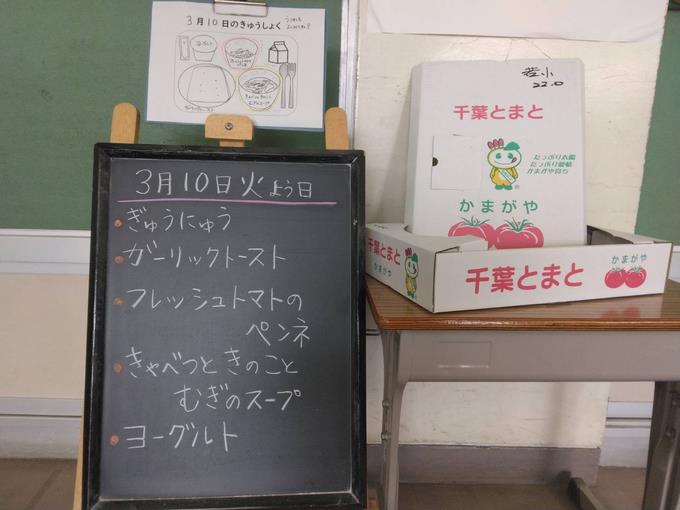 3月10日のきゅうしょく
ヨーグルト
3月10日火よう日
ぎゅうにゅう
ガーリックトースト
フレッシュトマトの
ペンネ
きゃべつときのこと
むぎのスープ
ヨーグルト
若小
22.0
千葉とまと
たっぷり太陽
たっぷり愛情
かまがや育ち
かまがや
千葉とまと
千葉とまと
かまがや